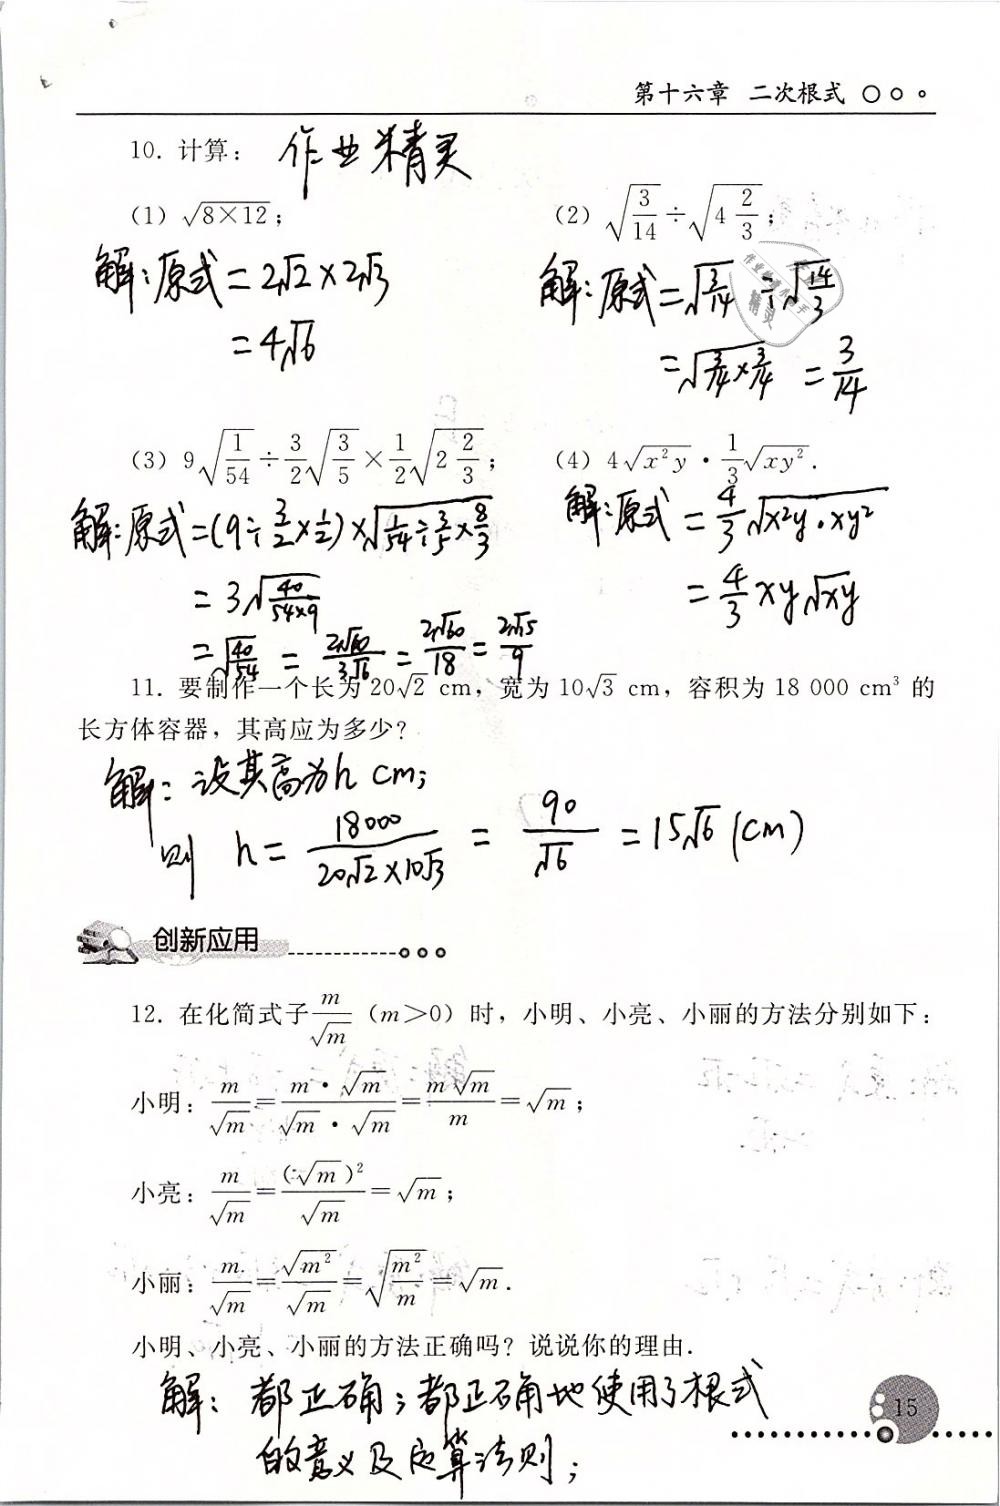 第十六章 二次根式
10. 计算: 作业精灵
(1) √(8×12);
(2) √(3/14)÷√(4 2/3);
解:原式=2√2×2√3
=4√6
解:原式=√(3/14)÷√(14/3)
=√(3/14×3/14)=3/14
(3) 9√(1/54)÷3/2√(3/5)×1/2√(2 2/3);
(4) 4√(x²y)·1/3√(xy²).
解:原式=(9÷3/2×1/2)×√(1/54÷3/5×8/3)
=3√(40/(54×9))
=√(40/54)=2√10/3√6=2√60/18=2√15/9
解:原式=4/3√(x²y·xy²)
=4/3xy√(xy)
11. 要制作一个长为20√2 cm,宽为10√3 cm,容积为18 000 cm³的
长方体容器,其高应为多少?
解:设其高为h cm;
则 h=18000/(20√2×10√3)=90/√6=15√6(cm)
创新应用
12. 在化简式子m/√m(m>0)时,小明、小亮、小丽的方法分别如下:
小明:m/√m=(m·√m)/(√m·√m)=m√m/m=√m;
小亮:m/√m=(√m)²/√m=√m;
小丽:m/√m=√m²/√m=√(m²/m)=√m.
小明、小亮、小丽的方法正确吗?说说你的理由.
解:都正确;都正确地使用了根式
的意义及运算法则;
15